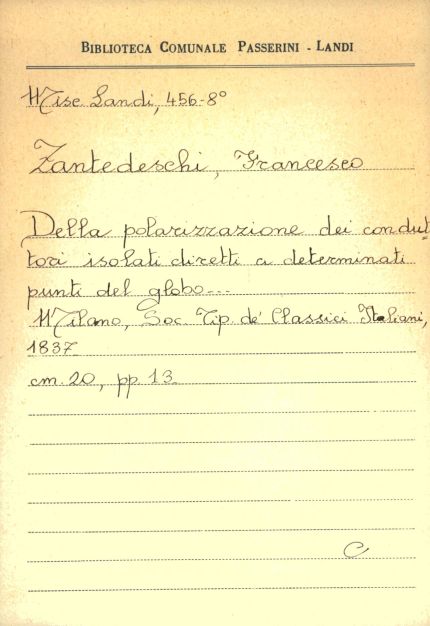 BIBLIOTECA COMUNALE PASSERINI - LANDI
Misc Landi, 456-8°
Zantedeschi, Francesco
Della polarizzazione dei condut-
tori isolati diretti a determinati
punti del globo...
Milano, Soc Tip. de' Classici Italiani,
1837
cm. 20, pp. 13
C